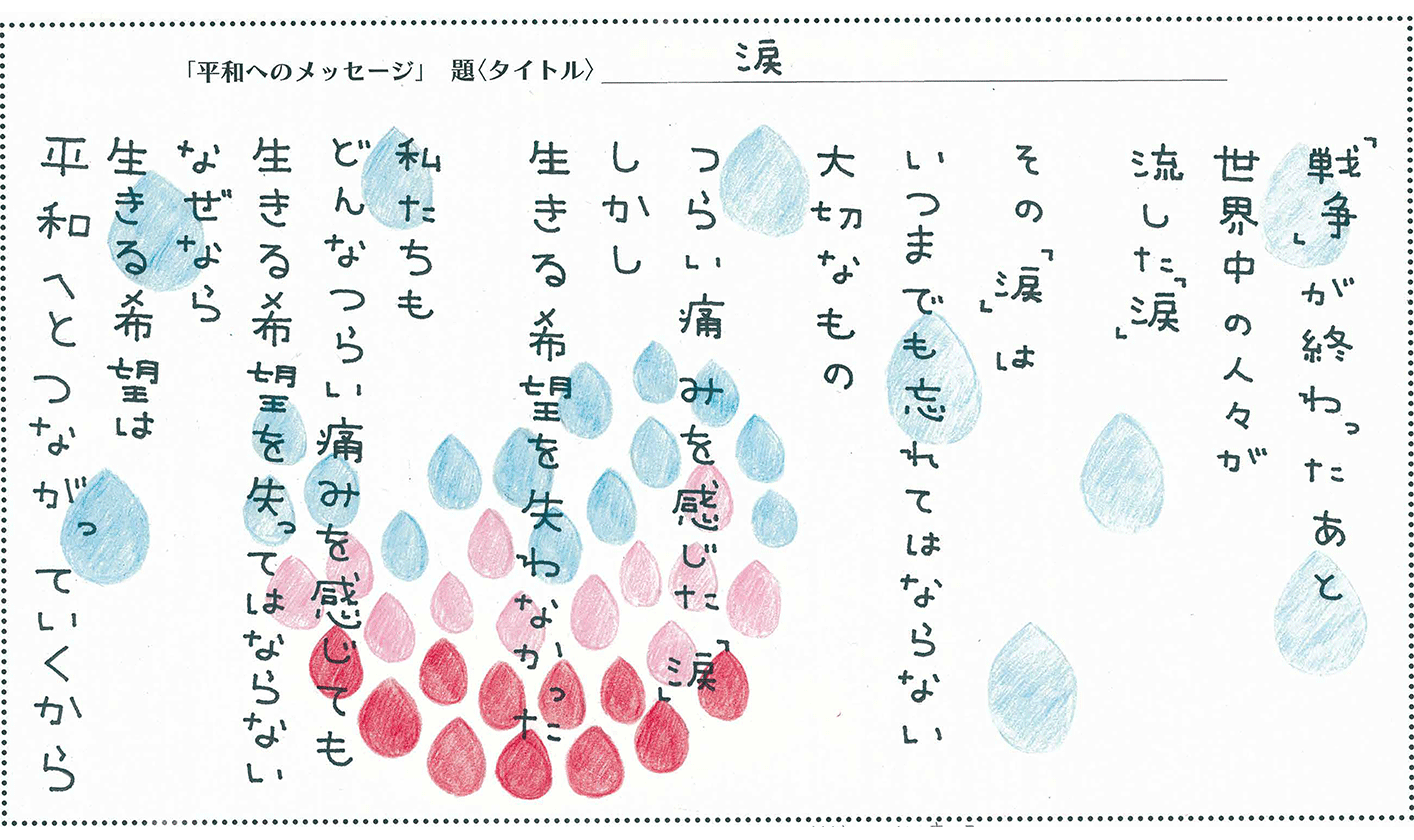 「平和へのメッセージ」 題〈タイトル〉 涙
「戦争」が終わったあと
世界中の人々が
流した「涙」
その「涙」は
いつまでも忘れてはならない
大切なもの
つらい痛みを感じた「涙」
しかし
生きる希望を失わなかった
私たちも
どんなつらい痛みを感じても
生きる希望を失ってはならない
なぜなら
生きる希望は
平和へとつながっていくから